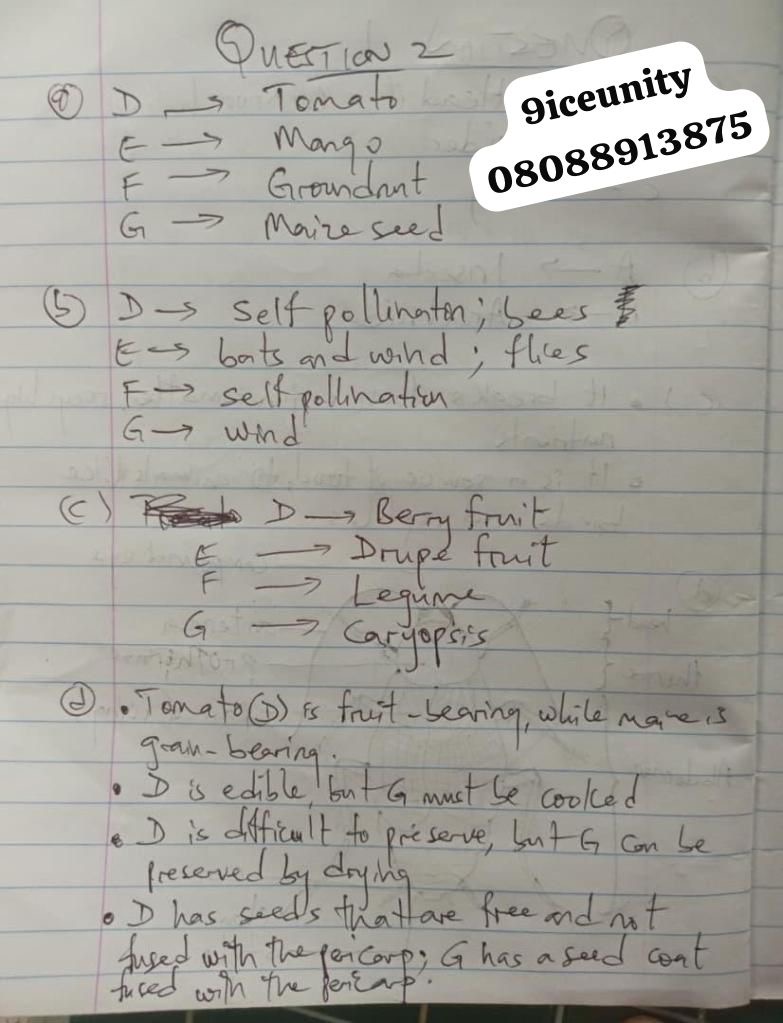 QUESTION 2
9iceunity
08088913875
(a) D → Tomato
E → Mango
F → Groundnut
G → Maize seed
(b) D → self pollination; bees
E → bats and wind; flies
F → self pollination
G → wind
(c) D → Berry fruit
E → Drupe fruit
F → Legume
G → Caryopsis
(d) • Tomato (D) is fruit-bearing, while maize is
grain-bearing.
• D is edible, but G must be cooked
• D is difficult to preserve, but G can be
preserved by drying
• D has seeds that are free and not
fused with the pericarp; G has a seed coat
fused with the pericarp.